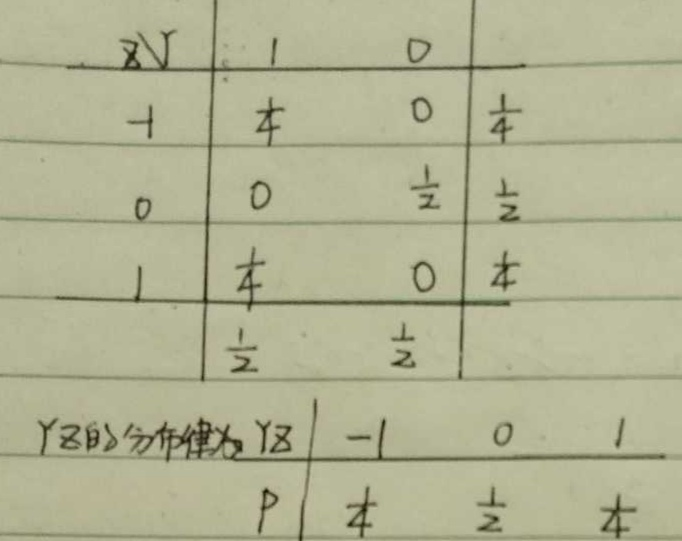 ZY 1 0
-1 1/4 0 1/4
0 0 1/2 1/2
1 1/4 0 1/4
1/2 1/2
YZ的分布律为 YZ -1 0 1
P 1/4 1/2 1/4